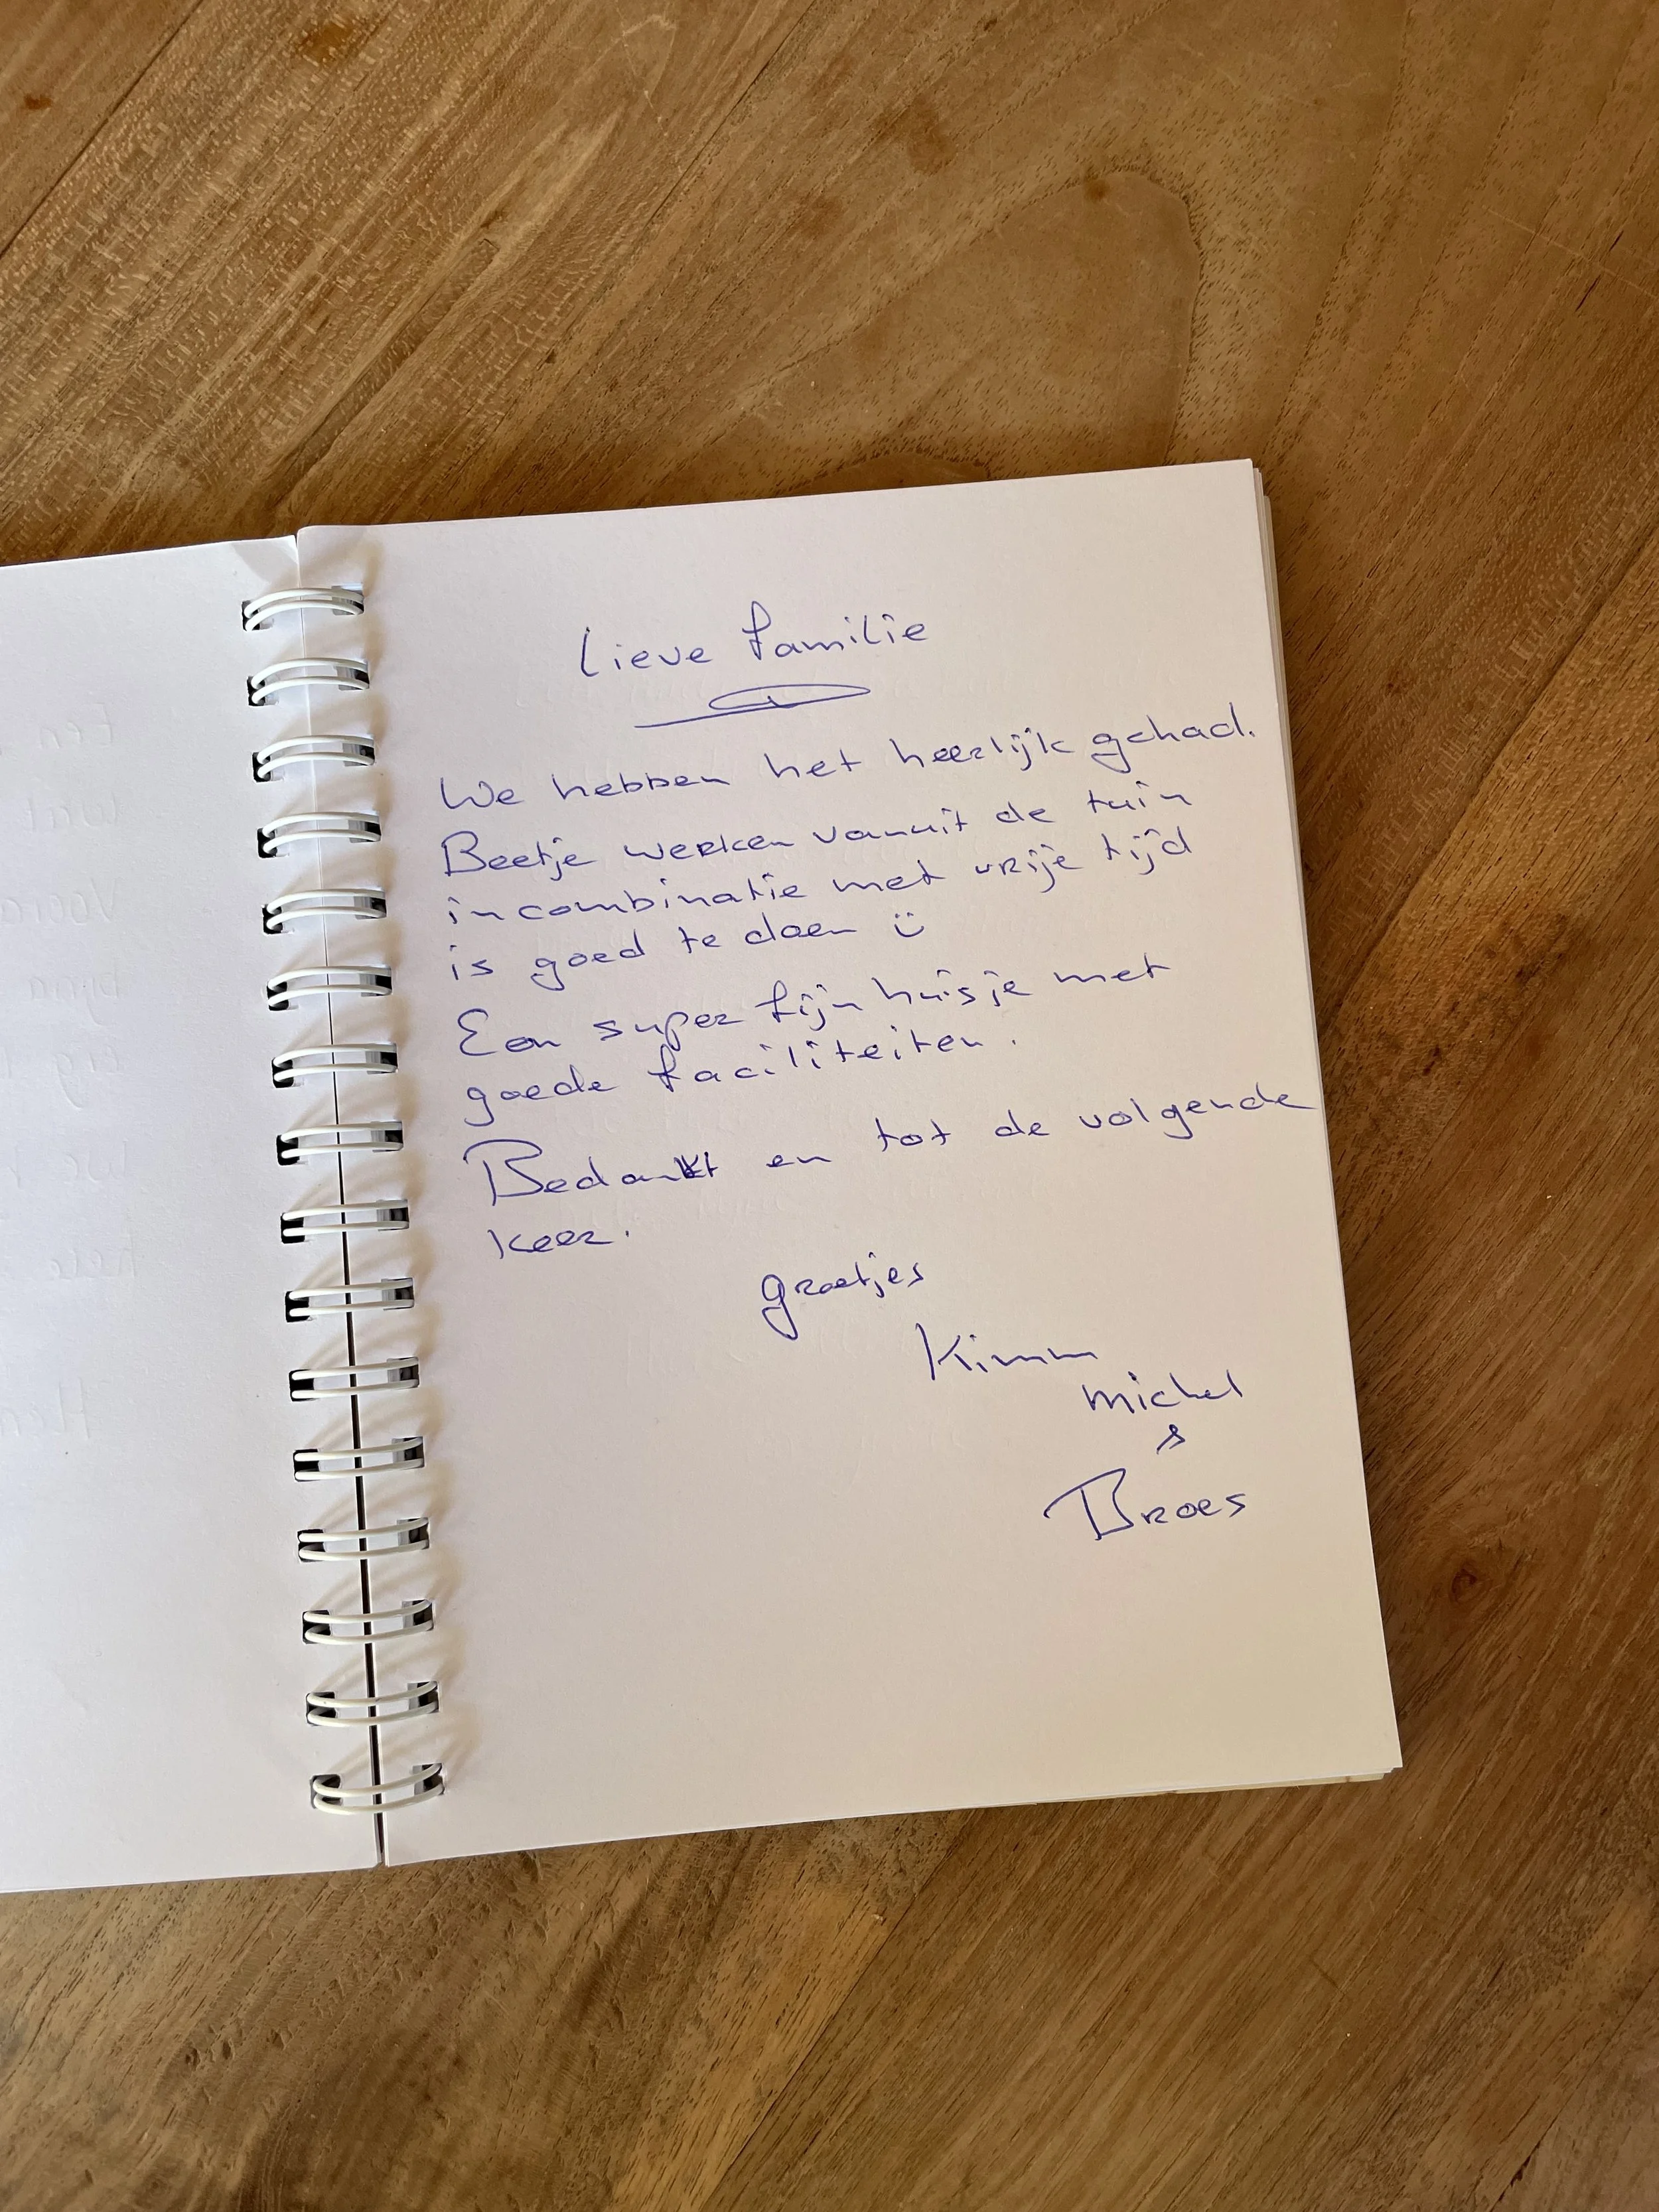 Lieve familie
We hebben het heerlijk gehad.
Beetje werken vanuit de tuin
in combinatie met vrije tijd
is goed te doen ü
Een super fijn huisje met
goede faciliteiten.
Bedankt en tot de volgende
keer.
groetjes
Kimm
michel
&
Broes